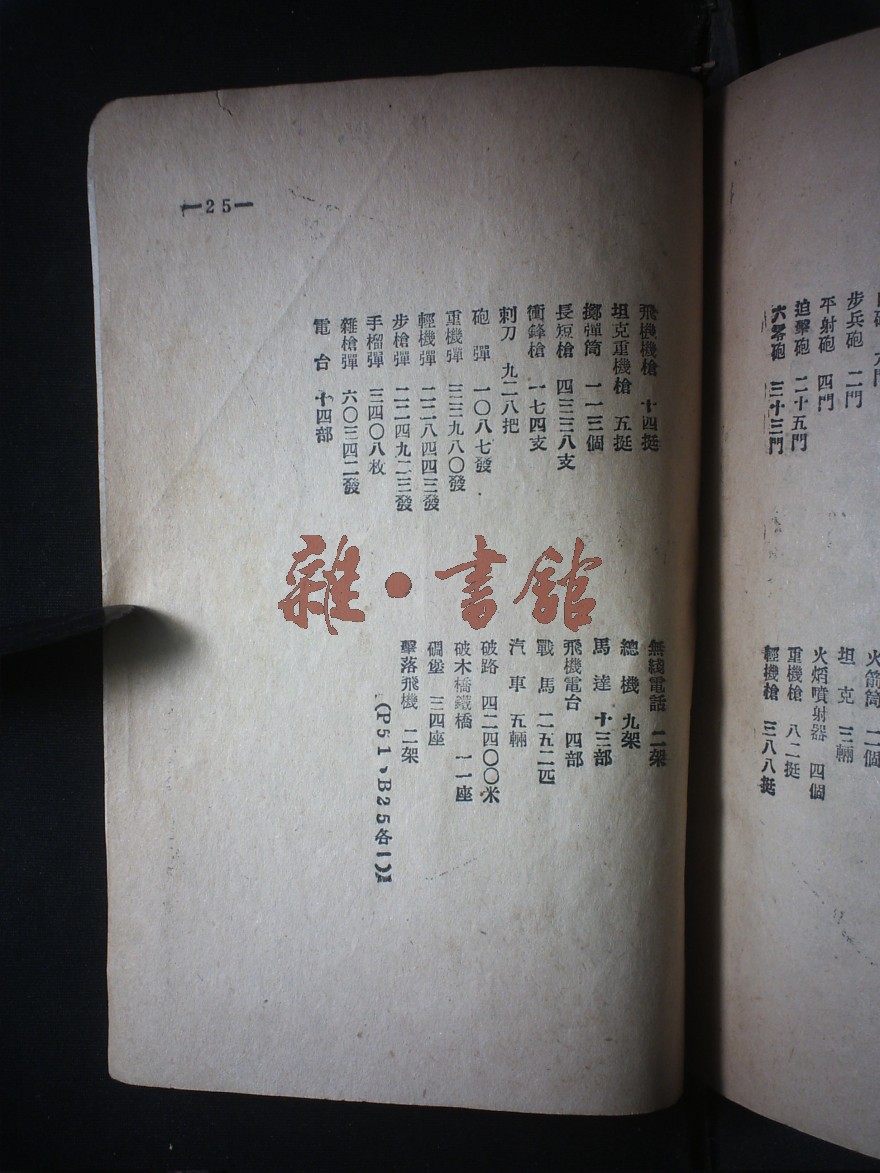 步兵砲 二門
平射砲 四門
迫擊砲 二十五門
六零砲 三十三門
火箭筒 二個
坦克 三輛
火焰噴射器 四個
重機槍 八二挺
輕機槍 三八八挺
飛機機槍 十四挺
坦克重機槍 五挺
擲彈筒 一一三個
長短槍 四三三八支
衝鋒槍 一七四支
刺刀 九二八把
砲彈 一〇八七發
重機彈 三三九八〇發
輕機彈 一二八四四三發
步槍彈 一二四九二三發
手榴彈 三四〇八枚
雜槍彈 六〇三四二發
電台 十四部
無綫電話 二架
總機 九架
馬達 十三部
飛機電台 四部
戰馬 二五二匹
汽車 五輛
破路 四二四〇〇米
破木橋鐵橋 一一座
碉堡 三四座
擊落飛機 二架
(P51、B25各1)
—25—
雜·書館